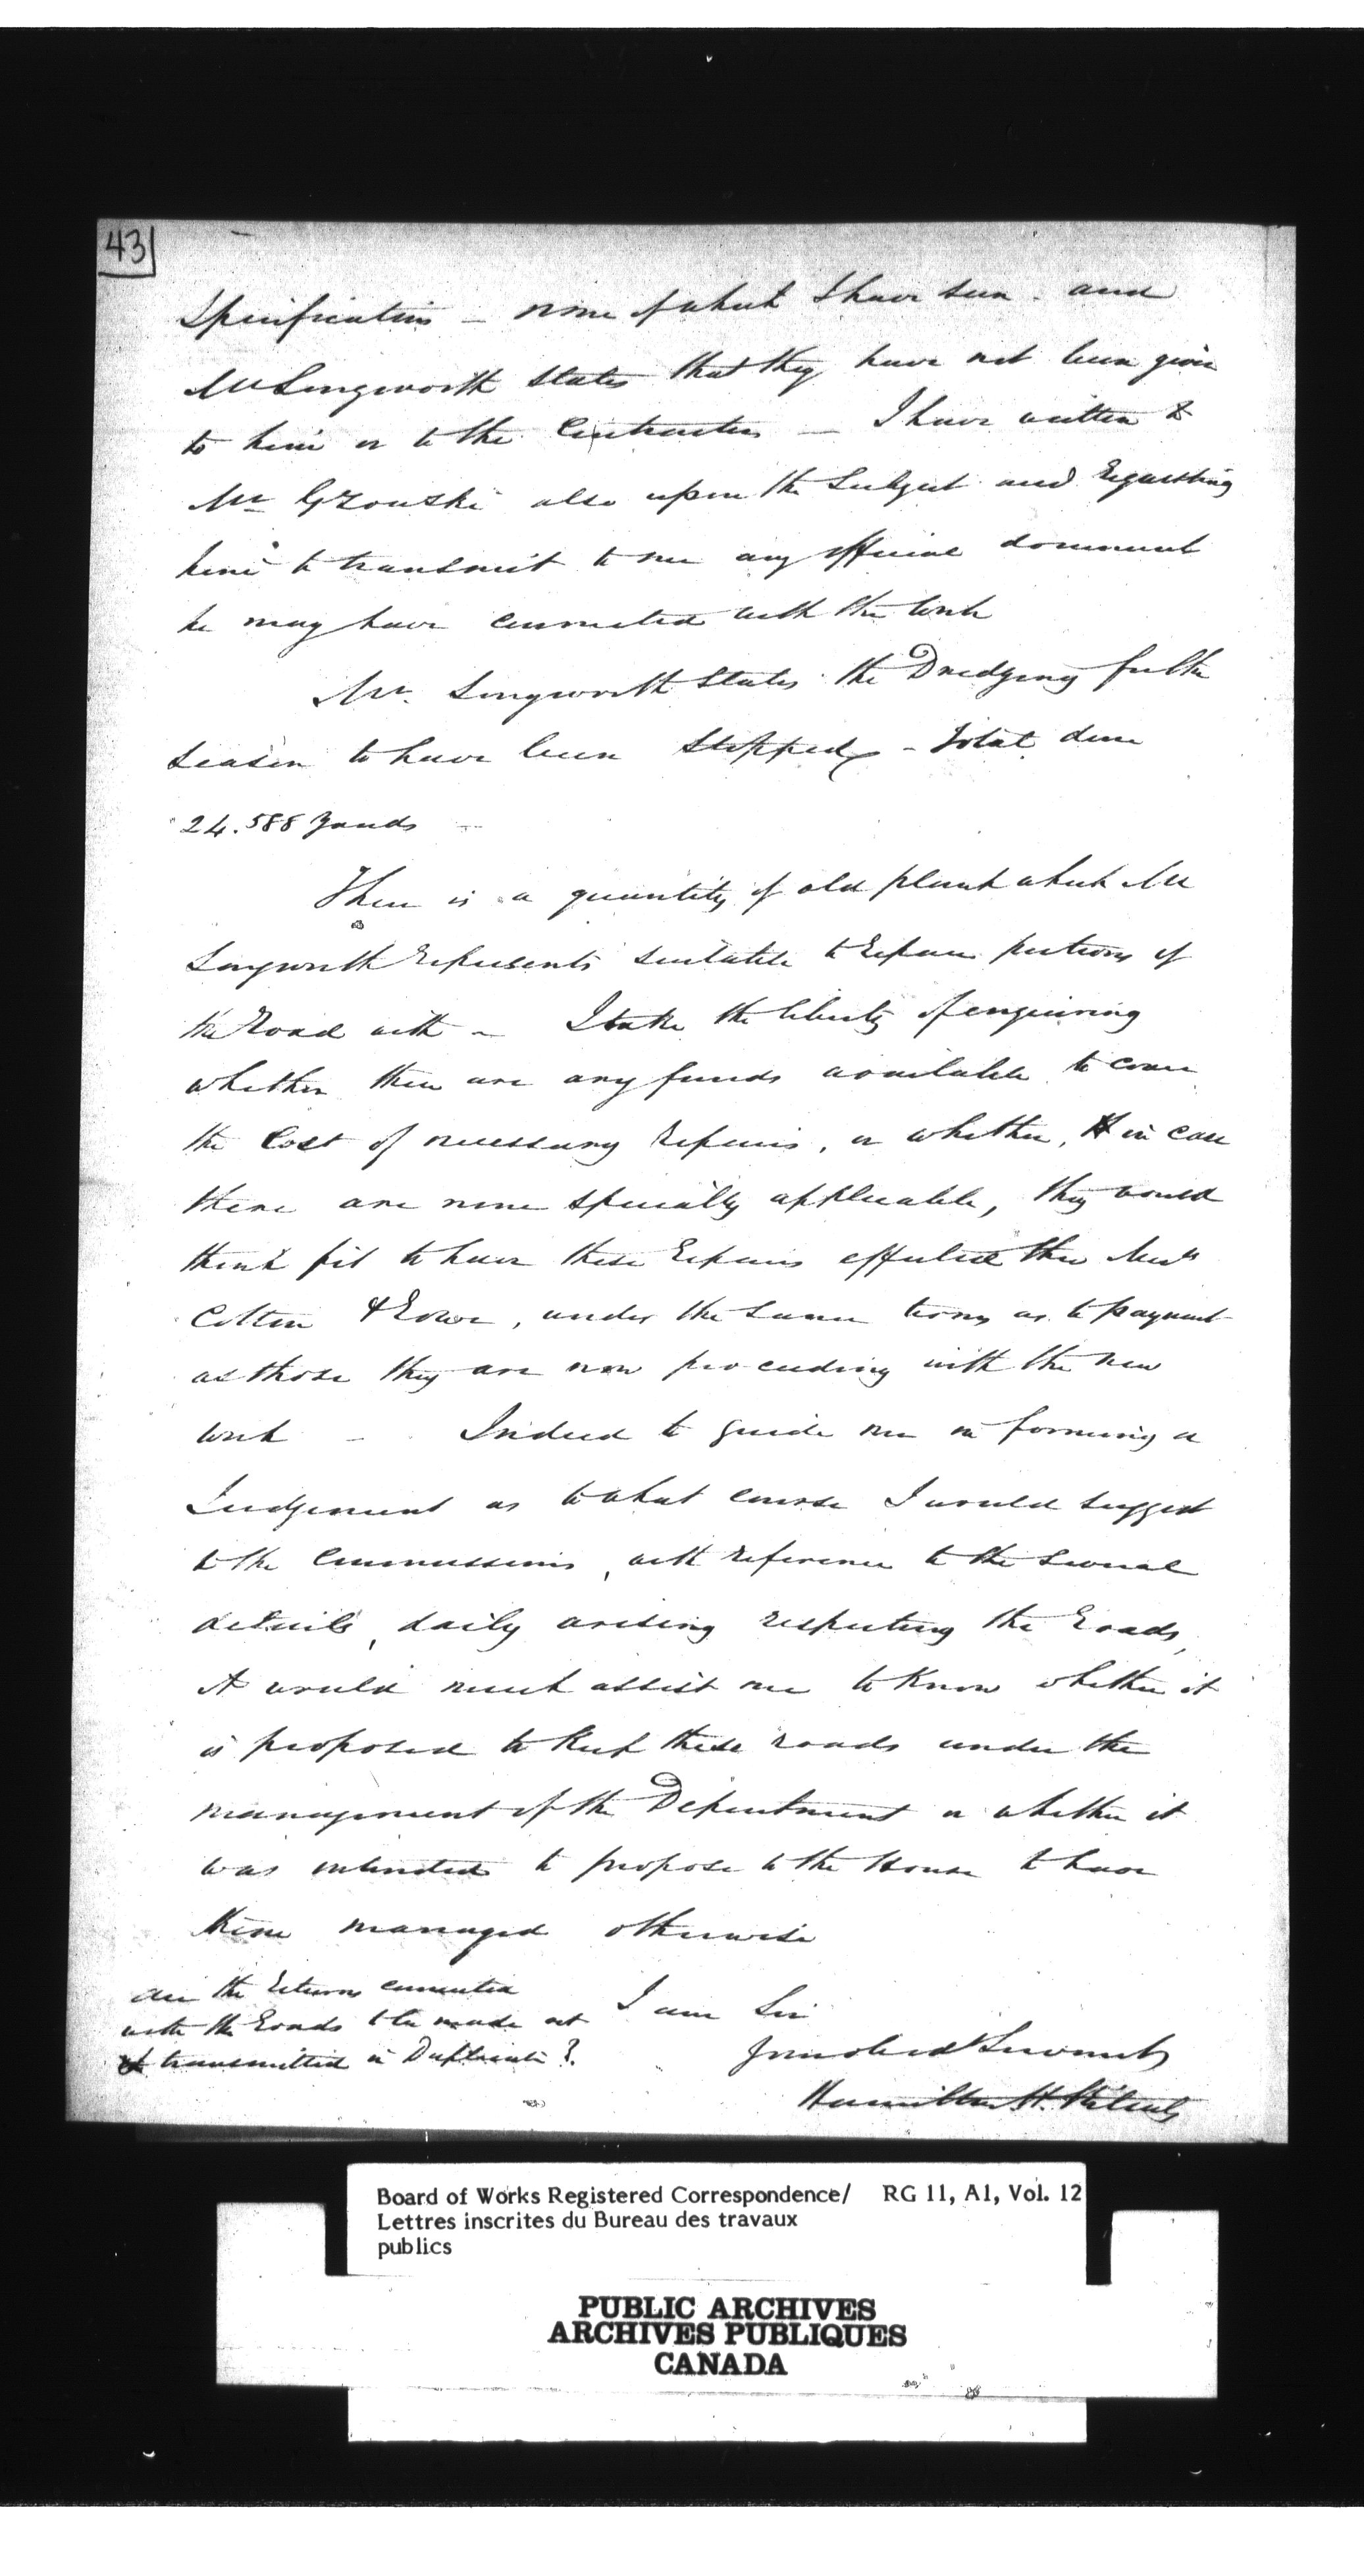 43
Specification — none of which I have seen - and
Mr Longworth States that they have not been given
to him or to the Contractors — I have written to
Mr Gzouski also upon the Subject and Requesting
him to transmit to me any official document
he may have connected with the work
Mr. Longworth States the Dredging for the
season to have been Stopped - Total done
24.588 Yards —
There is a quantity of old plank which Mr
Longworth Represents suitable to Repair portions of
the Road with — I take the liberty of enquiring
whether there are any funds available to cover
the Cost of necessary Repairs, or whether, in case
there are none specially applicable, they would
think fit to have these Repairs effected thro Messrs
Cotton & Rowe, under the same terms as to payment
as those they are now proceeding with the new
work — Indeed to guide me in forming a
Judgement as to what course I would suggest
to the Commissioners, with reference to the several
details, daily arising respecting the Roads,
it would much assist me to Know whether it
is proposed to Keep these roads under the
management of the Department or whether it
was intended to propose to the House to have
them managed otherwise
are the Returns connected
with the Roads to be made out
& transmitted in Duplicate?
I am Sir
Your obed Servant
Hamilton H. Killaly
Board of Works Registered Correspondence/ RG 11, A1, Vol. 12
Lettres inscrites du Bureau des travaux
publics
PUBLIC ARCHIVES
ARCHIVES PUBLIQUES
CANADA